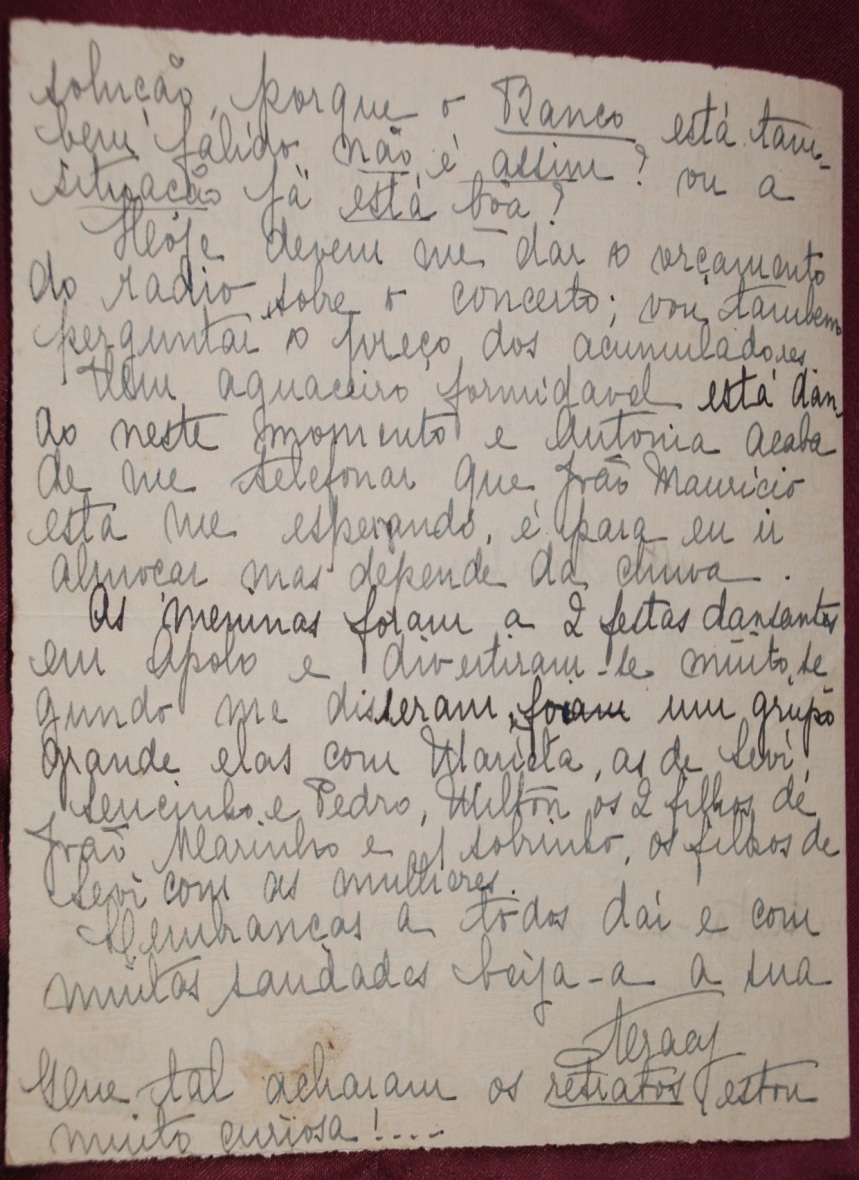 solução, porque o Banco está tam-
bem fálido não é assim? ou a
situação já está bôa?
Hoje devem me dar o orçamento
do radio sobre o concerto; vou tambem
perguntar o preço dos acumuladores.
Um aguaceiro formidavel está dan-
do neste momento e Antonia acaba
de me telefonar que João Mauricio
está me esperando, é para eu ir
almoçar mas depende da chuva.
As meninas foram a 2 festas dansantes
em Apolo e divertiram-se muito, se
gundo me disseram, foram um grupo
grande elas com Marieta, as de Sevi,
e Pedro, Milton os 2 filhos de
João Marinho e 1 sobrinho, os filhos de
Sevi com as mulheres.
Lembranças a todos dai e com
muitas saudades beija-a a sua
Que tal acharam os retratos estou
muito curiosa!....